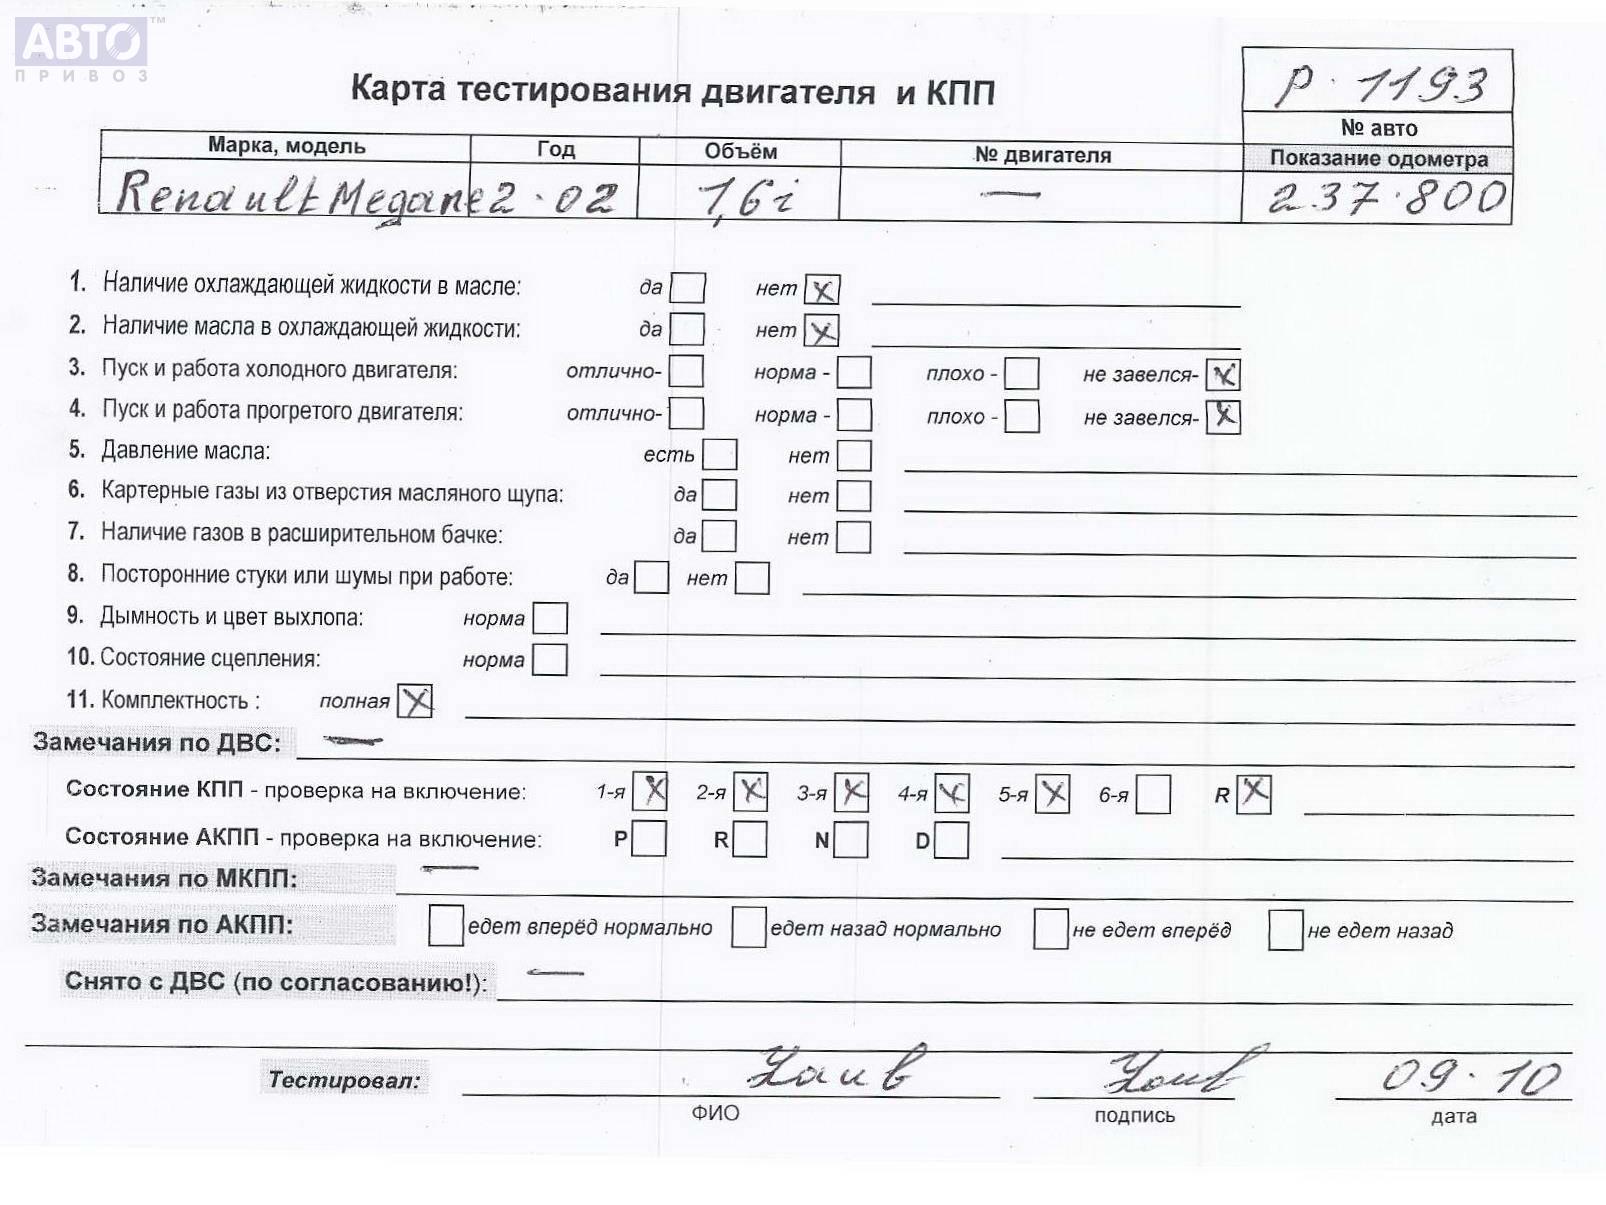 АВТО™
ПРИВОЗ
Карта тестирования двигателя и КПП
Р. 1193
№ авто
Марка, модель Год Объём № двигателя Показание одометра
Renault Megane 2.02 1,6i — 237.800
1. Наличие охлаждающей жидкости в масле: да нет X
2. Наличие масла в охлаждающей жидкости: да нет X
3. Пуск и работа холодного двигателя: отлично- норма - плохо - не завелся- X
4. Пуск и работа прогретого двигателя: отлично- норма - плохо - не завелся- X
5. Давление масла: есть нет
6. Картерные газы из отверстия масляного щупа: да нет
7. Наличие газов в расширительном бачке: да нет
8. Посторонние стуки или шумы при работе: да нет
9. Дымность и цвет выхлопа: норма
10. Состояние сцепления: норма
11. Комплектность : полная X
Замечания по ДВС: —
Состояние КПП - проверка на включение: 1-я X 2-я X 3-я X 4-я X 5-я X 6-я R X
Состояние АКПП - проверка на включение: P R N D
Замечания по МКПП: —
Замечания по АКПП: едет вперёд нормально едет назад нормально не едет вперёд не едет назад
Снято с ДВС (по согласованию!): —
Тестировал: 09.10
ФИО подпись дата